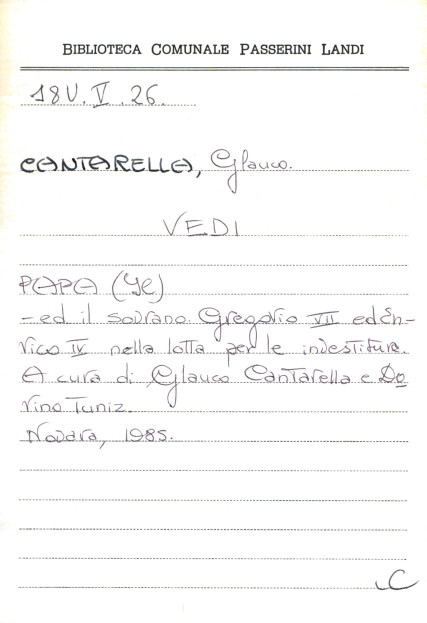 BIBLIOTECA COMUNALE PASSERINI LANDI
18U.V.26.
CANTARELLA, Glauco.
VEDI
PAPA (Il)
- ed il sovrano. Gregorio VII ed En-
rico IV nella lotta per le investiture.
A cura di Glauco Cantarella e Do
rino Tuniz.
Novara, 1985.
C